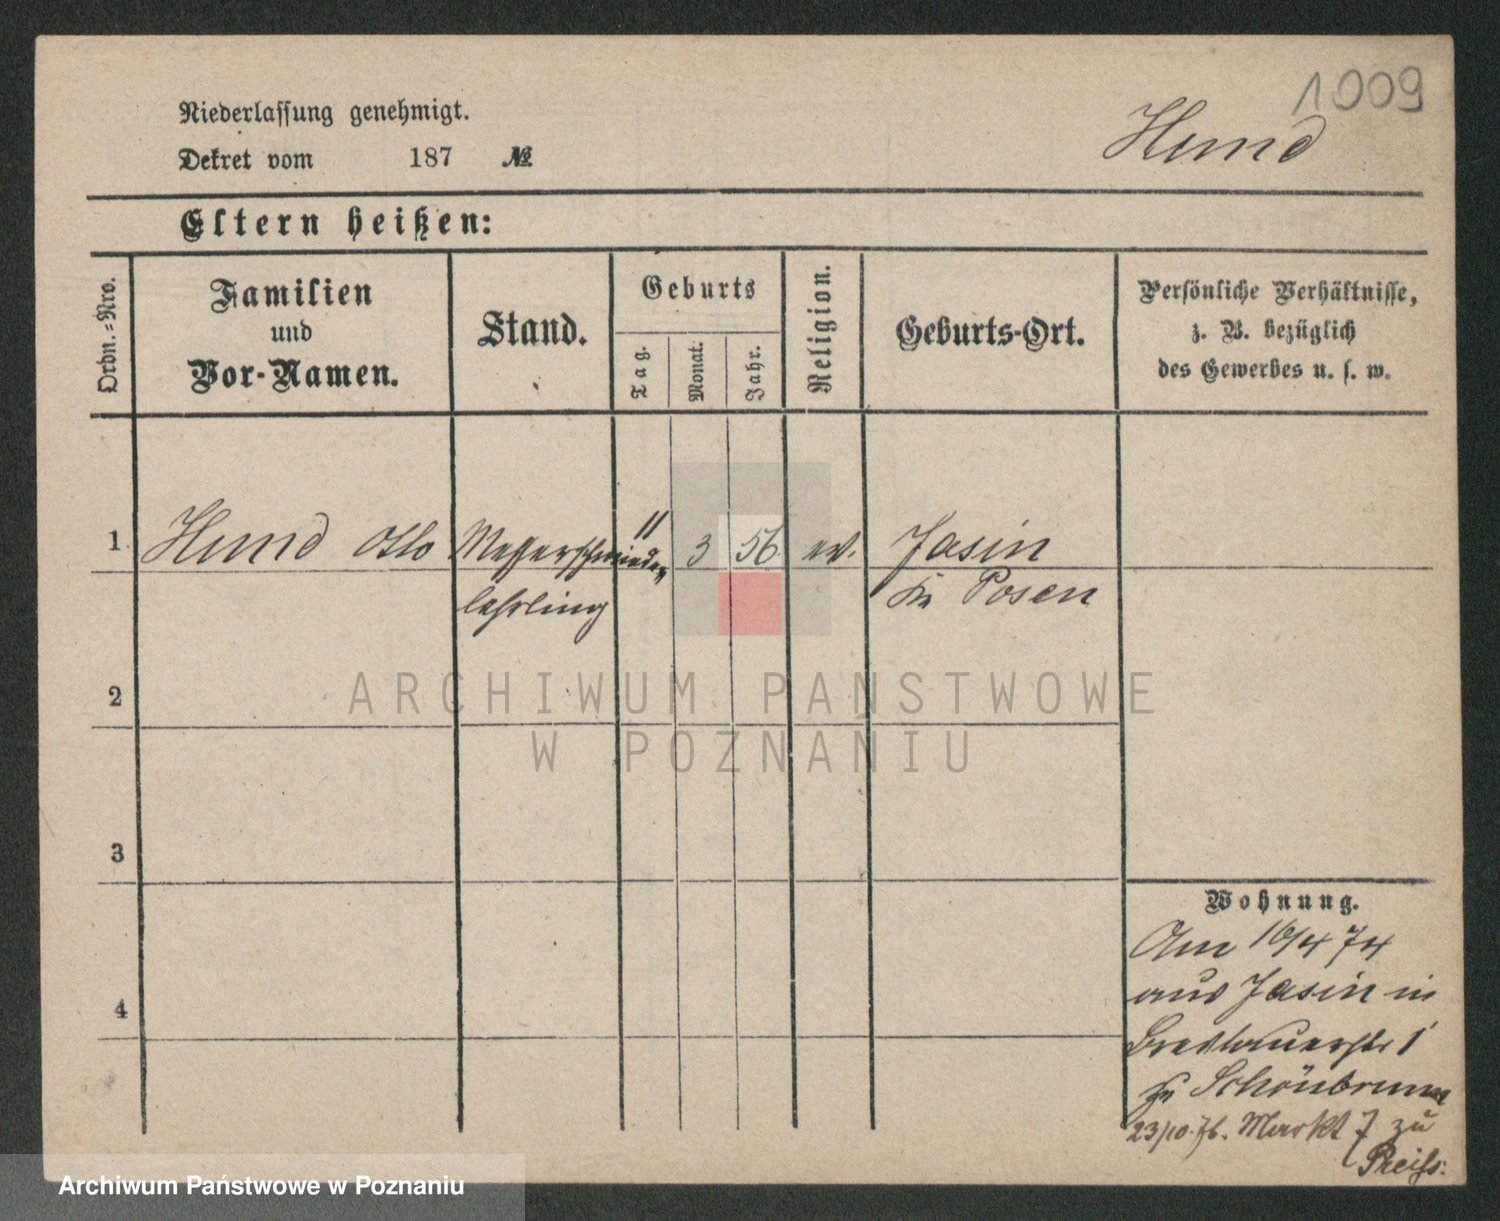 1009
Niederlassung genehmigt.
Hund
Dekret vom 187 №
Eltern heißen:
Ordn.=Nro.
Familien
und
Vor-Namen.
Stand.
Geburts
Tag.
Monat.
Jahr.
Religion.
Geburts-Ort.
Persönliche Verhältnisse,
z. B. bezüglich
des Gewerbes u. s. w.
1 Hund Otto Messerschmiede 11 3 56 ev. Jasin
lehrling Kr. Posen
2
ARCHIWUM PAŃSTWOWE
W POZNANIU
3
4
Wohnung.
Am 16/4 74
aus Jasin in
Breslauerstr 1
zu Schönbrunn
23/10. 76. Markt 7 zu
Preiss.
Archiwum Państwowe w Poznaniu